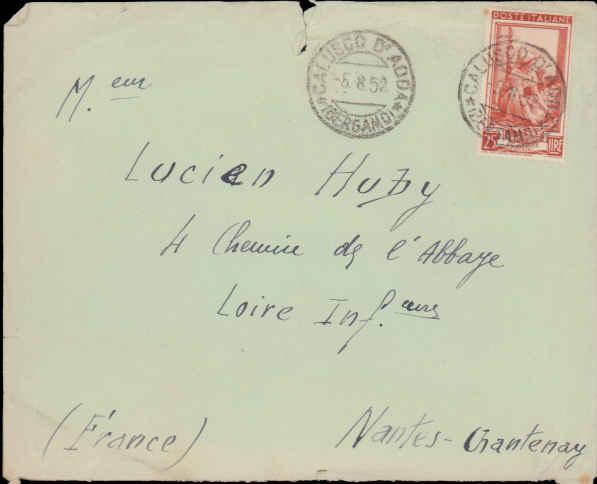 POSTE ITALIANE
CALUSCO D'ADDA
-5.8.52
*(BERGAMO)*
CALUSCO D'ADDA
*(BERGAMO)*
25 LIRE
M.eur
Lucien Huby
4 Chemin de l'Abbaye
Loire Inf.eure
(France)
Nantes-Chantenay